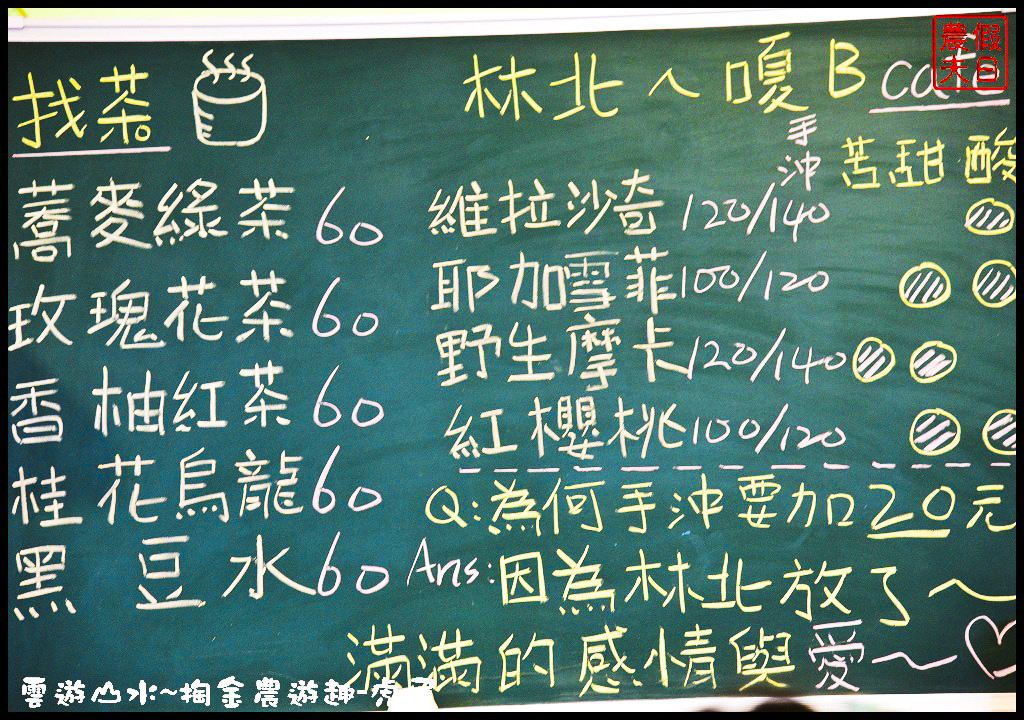 找茶
蕎麥綠茶 60
玫瑰花茶 60
香柚紅茶 60
桂花烏龍 60
黑豆水 60
林北ㄟ嘎B cafe
手沖 苦 甜 酸
維拉沙奇 120/140
耶加雪菲 100/120
野生摩卡 120/140
紅櫻桃 100/120
Q:為何手沖要加20元
Ans:因為林北放了~
滿滿的感情與愛~
假日農夫
雲遊山水~掏金農遊趣-虎